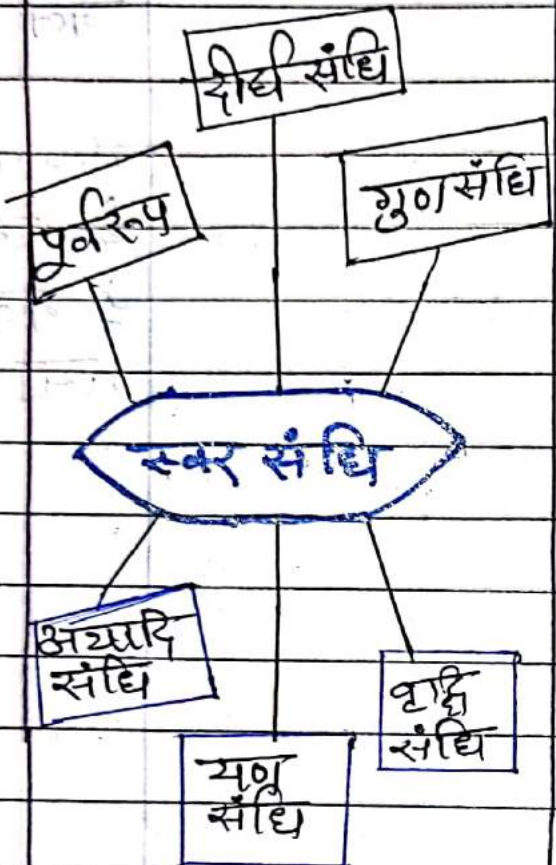 दीर्घ संधि
पूर्वरूप
गुण संधि
स्वर संधि
अयादि
संधि
वृद्धि
संधि
यण्
संधि